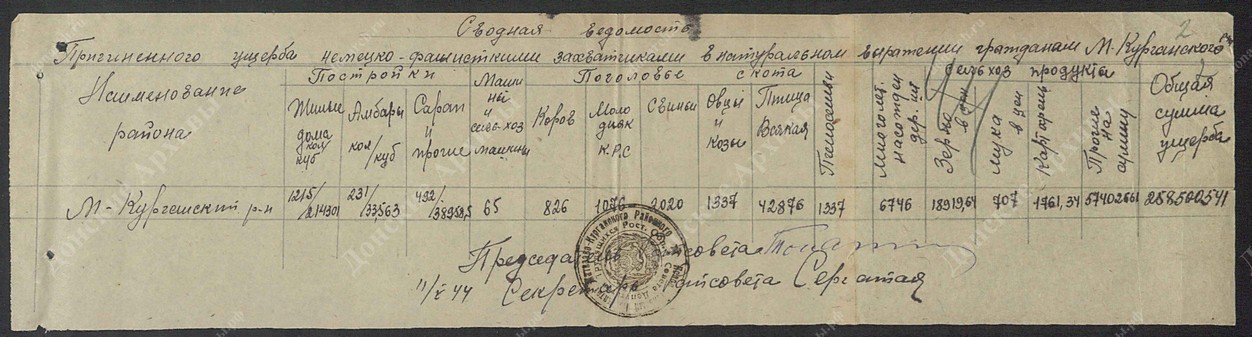 2
Сводная ведомость
Пригиненного ущерба немецко-фашисткими захватчиками в натуральном выражении гражданам М-Курганского
Наименование района
Постройки
Жилые дома кол/куб
Амбары кол/куб
Сараи и прочие
Машины и сельхоз машины
Поголовье скота
Коров
Молодняк К.Р.С
Свиньи
Овцы и козы
Птица Всякая
Пчелосемьи
Многолет насажден дер.
сельхоз продукты
Зерно в цен
Мука в цен
Картофель
Прочие на сумму
Общая сумма ущерба
М-Курганский р-н
1215/214301
231/33563
492/38959,5
65
826
1076
2020
1337
42876
1337
6746
18919,64
707
1761,34
57402661
258500541
Председатель райсовета
11/X 44 Секретарь райсовета